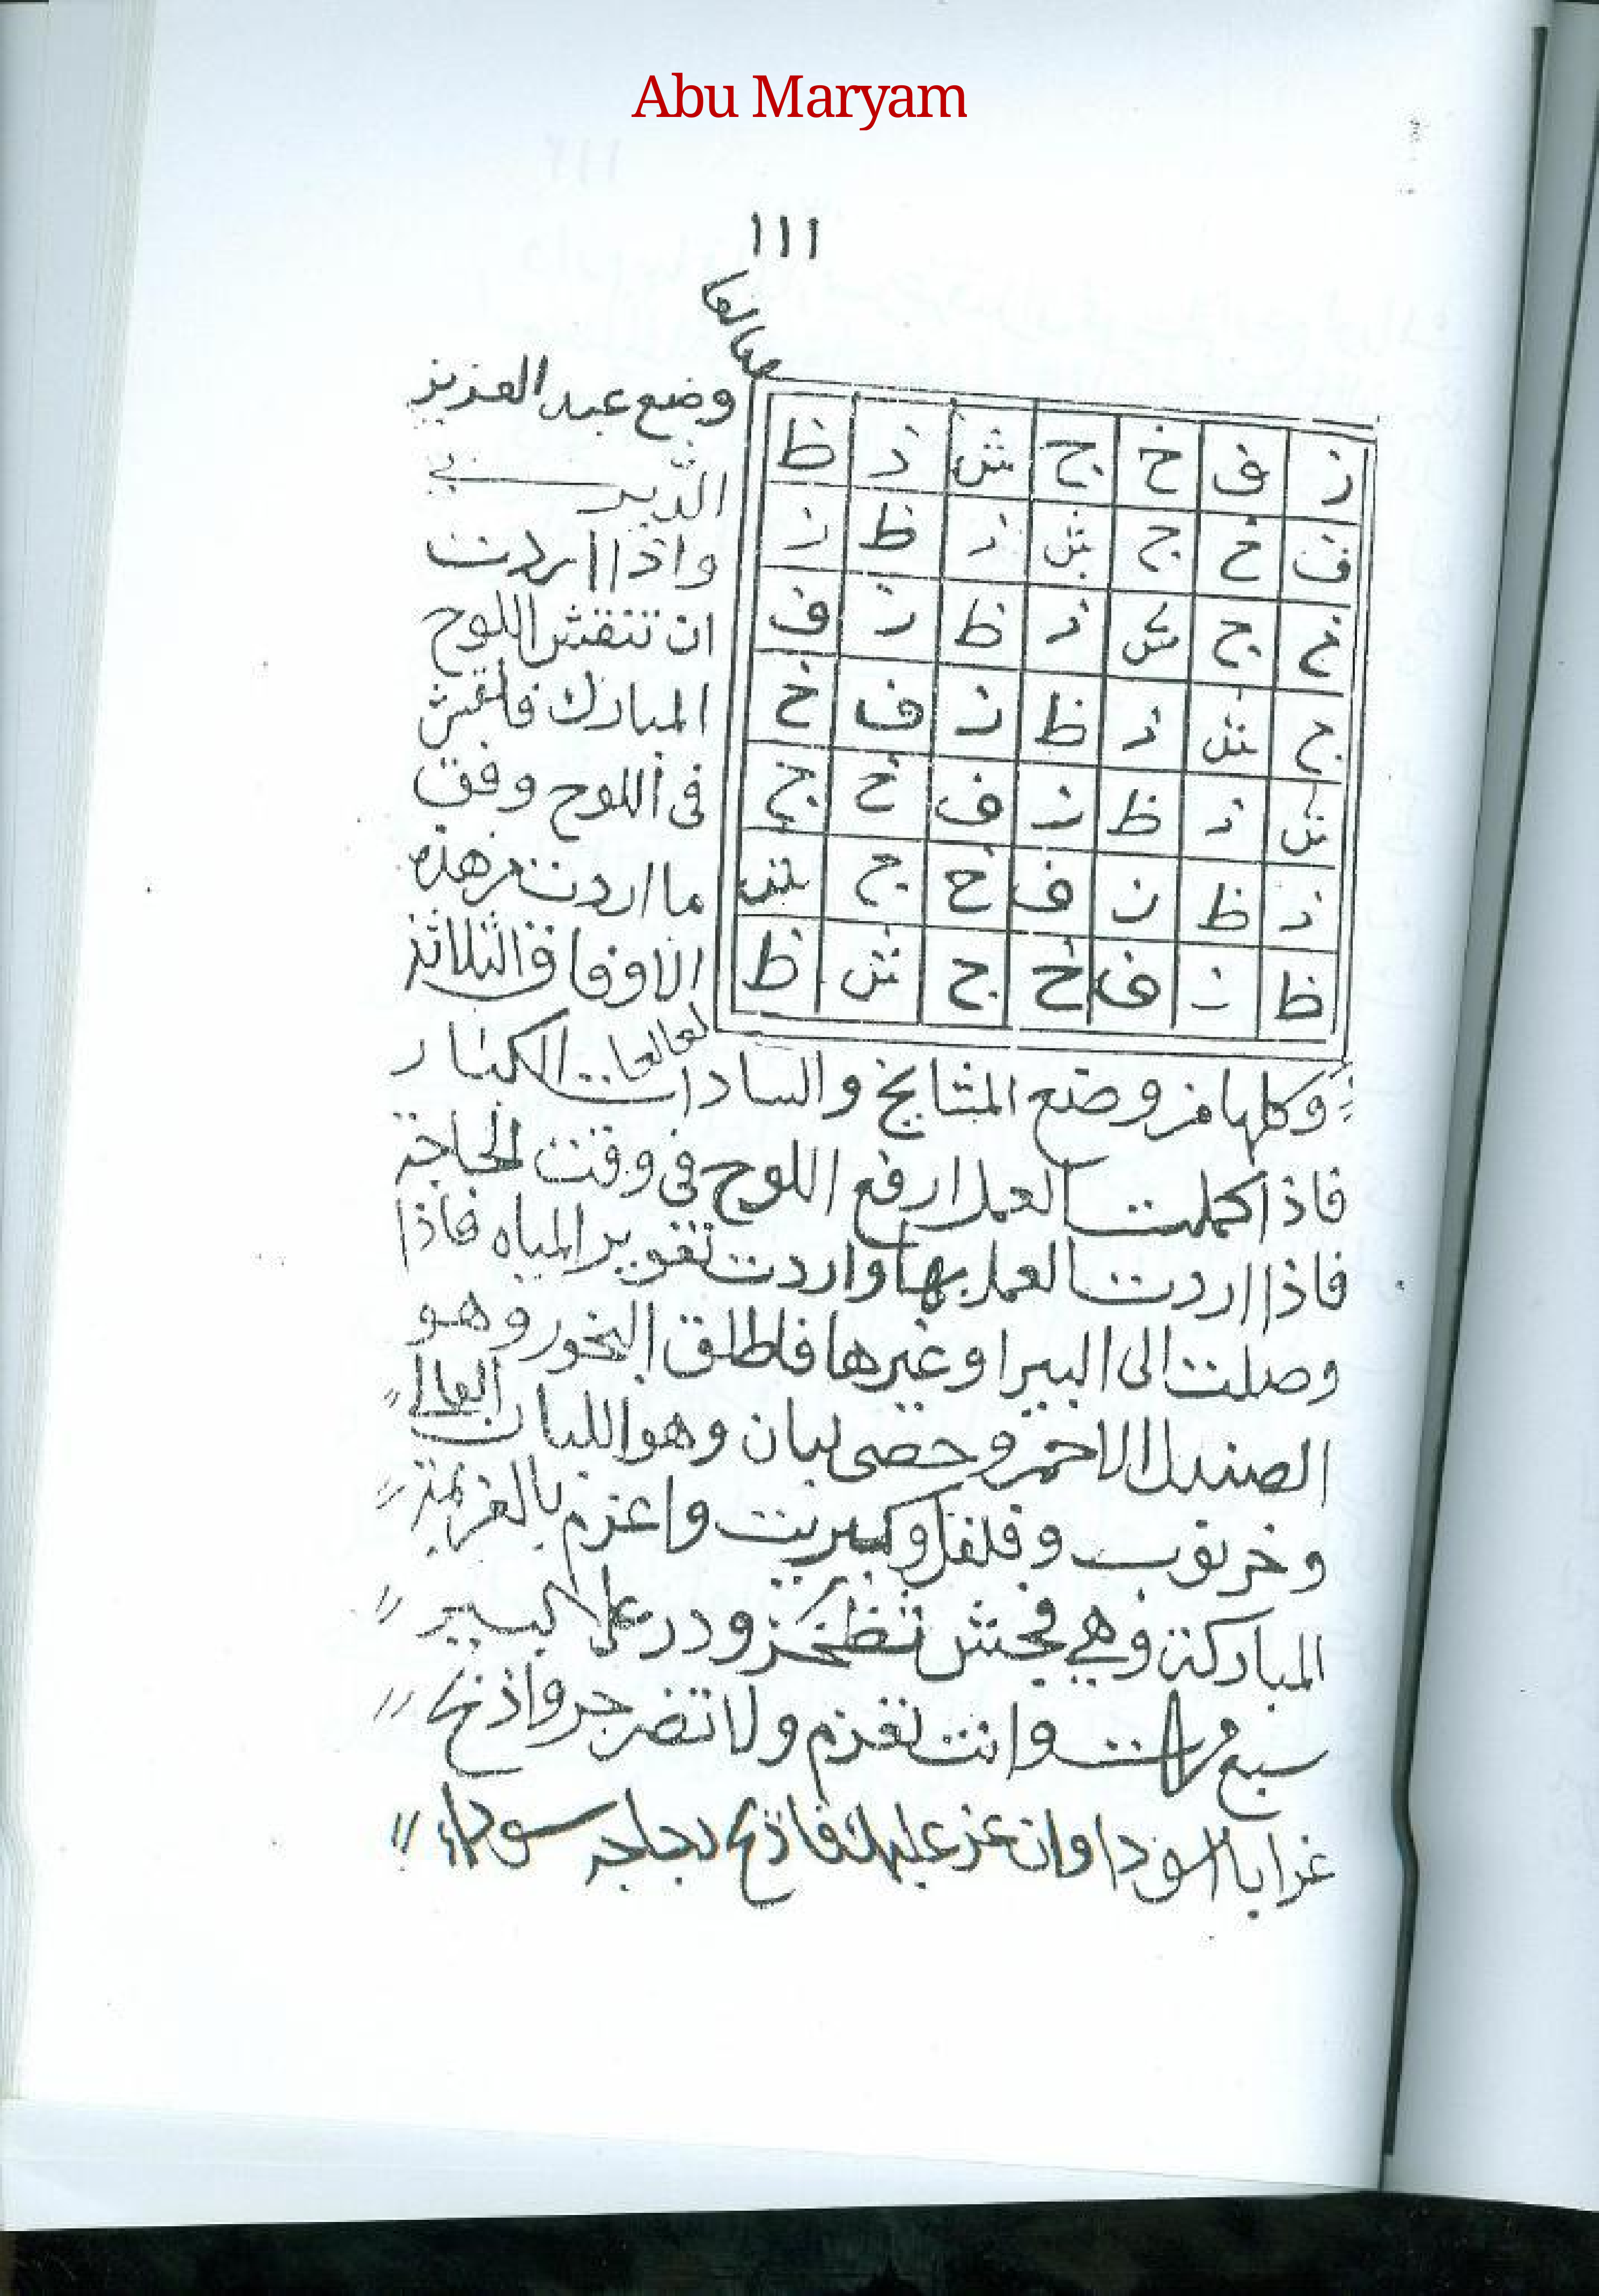 Abu Maryam
١١١
ز ف خ ج ش ذ ظ
ف خ ج ش ذ ظ ز
خ ج ش ذ ظ ز ف
ج ش ذ ظ ز ف خ
ش ذ ظ ز ف خ ج
ذ ظ ز ف خ ج ش
ظ ز ف خ ج ش ظ
وضع عبد العزيز
واذا اردت
ان تنقش اللوح
المبارك فانقش
فى اللوح وفق
ما اردت من هذه
الاوفاق الثلاثة
وكلها من وضع المشايخ والسادات الكبار
فاذا كملت العمل ارفع اللوح فى وقت الحاجة
فاذا اردت العمل بها واردت تغوير المياه فاذا
وصلت الى البير او غيرها فاطلق البخور وهو
الصندل الاحمر وحصى لبان وهو اللبان
وخرنوب وفلفل وكبريت واعزم بالعزيمة
المباركة وهي فجش ودر على البير
سبع مرات وانت تعزم ولا تضرجر واذبح
غرابا اسودا وان عز عليك فاذبح دجاجه سوداء